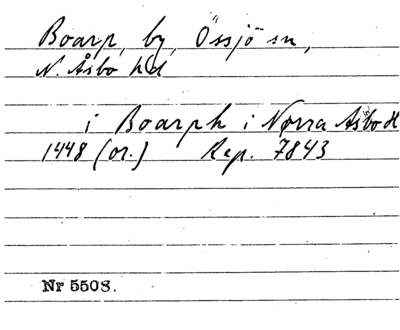 Boarp, by, Össjö sn,
N. Åsbo hd
i Boarph i Nørra Asbo H
1448 (or.) Rep. 7843
Nr 5508.